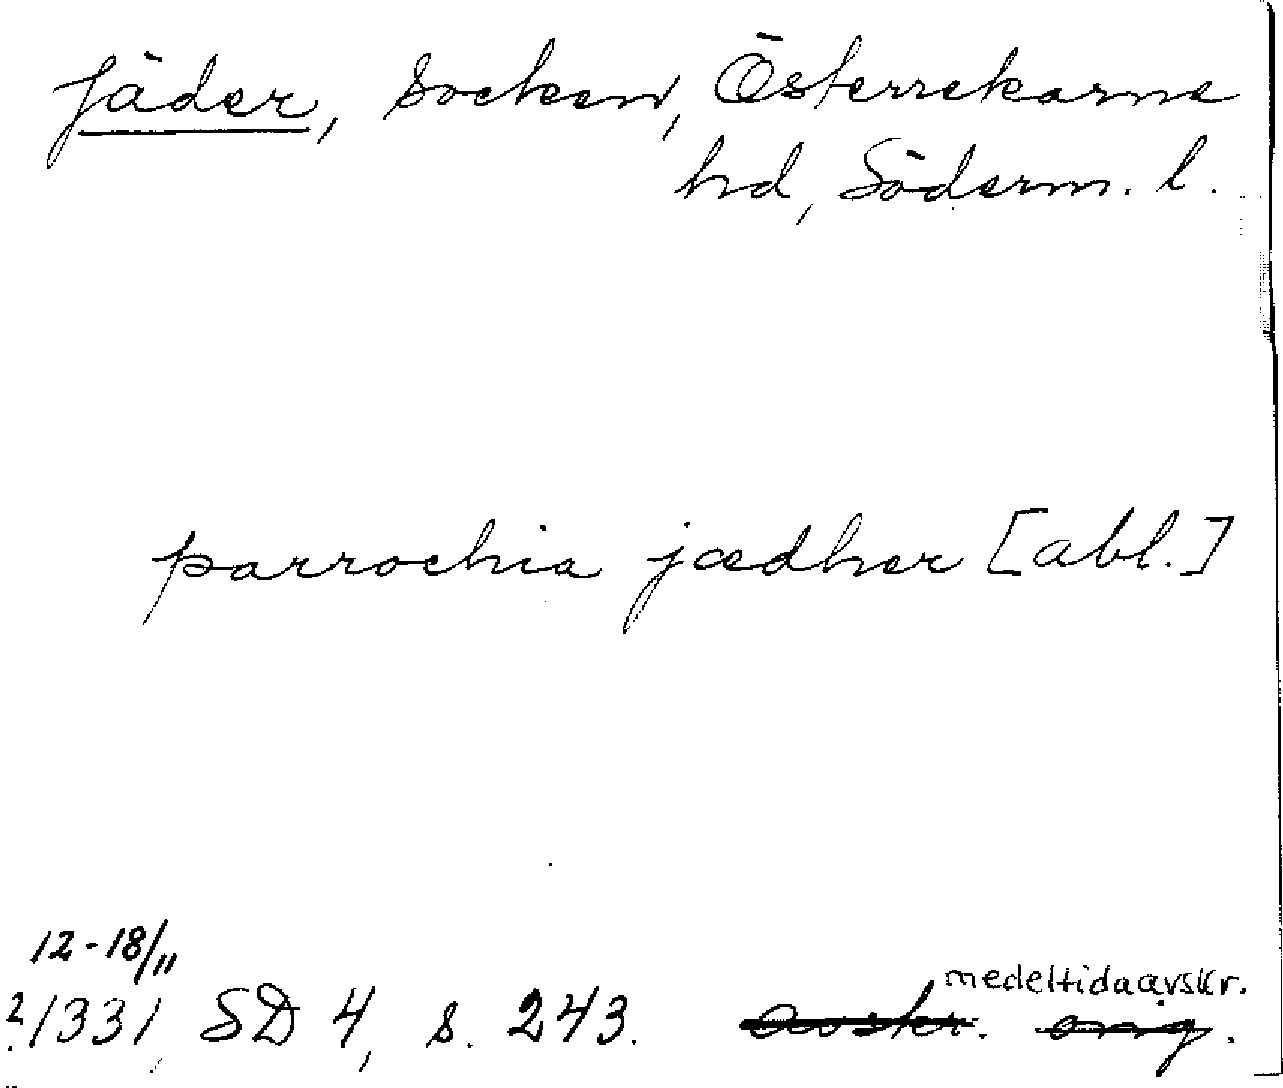 Jäder, socken, Österrekarne
hd, Söderm. l.
parrochia jædher [abl.]
12-18/11
?/1331 SD 4, s. 243. avskr. orig.
medeltida avskr.